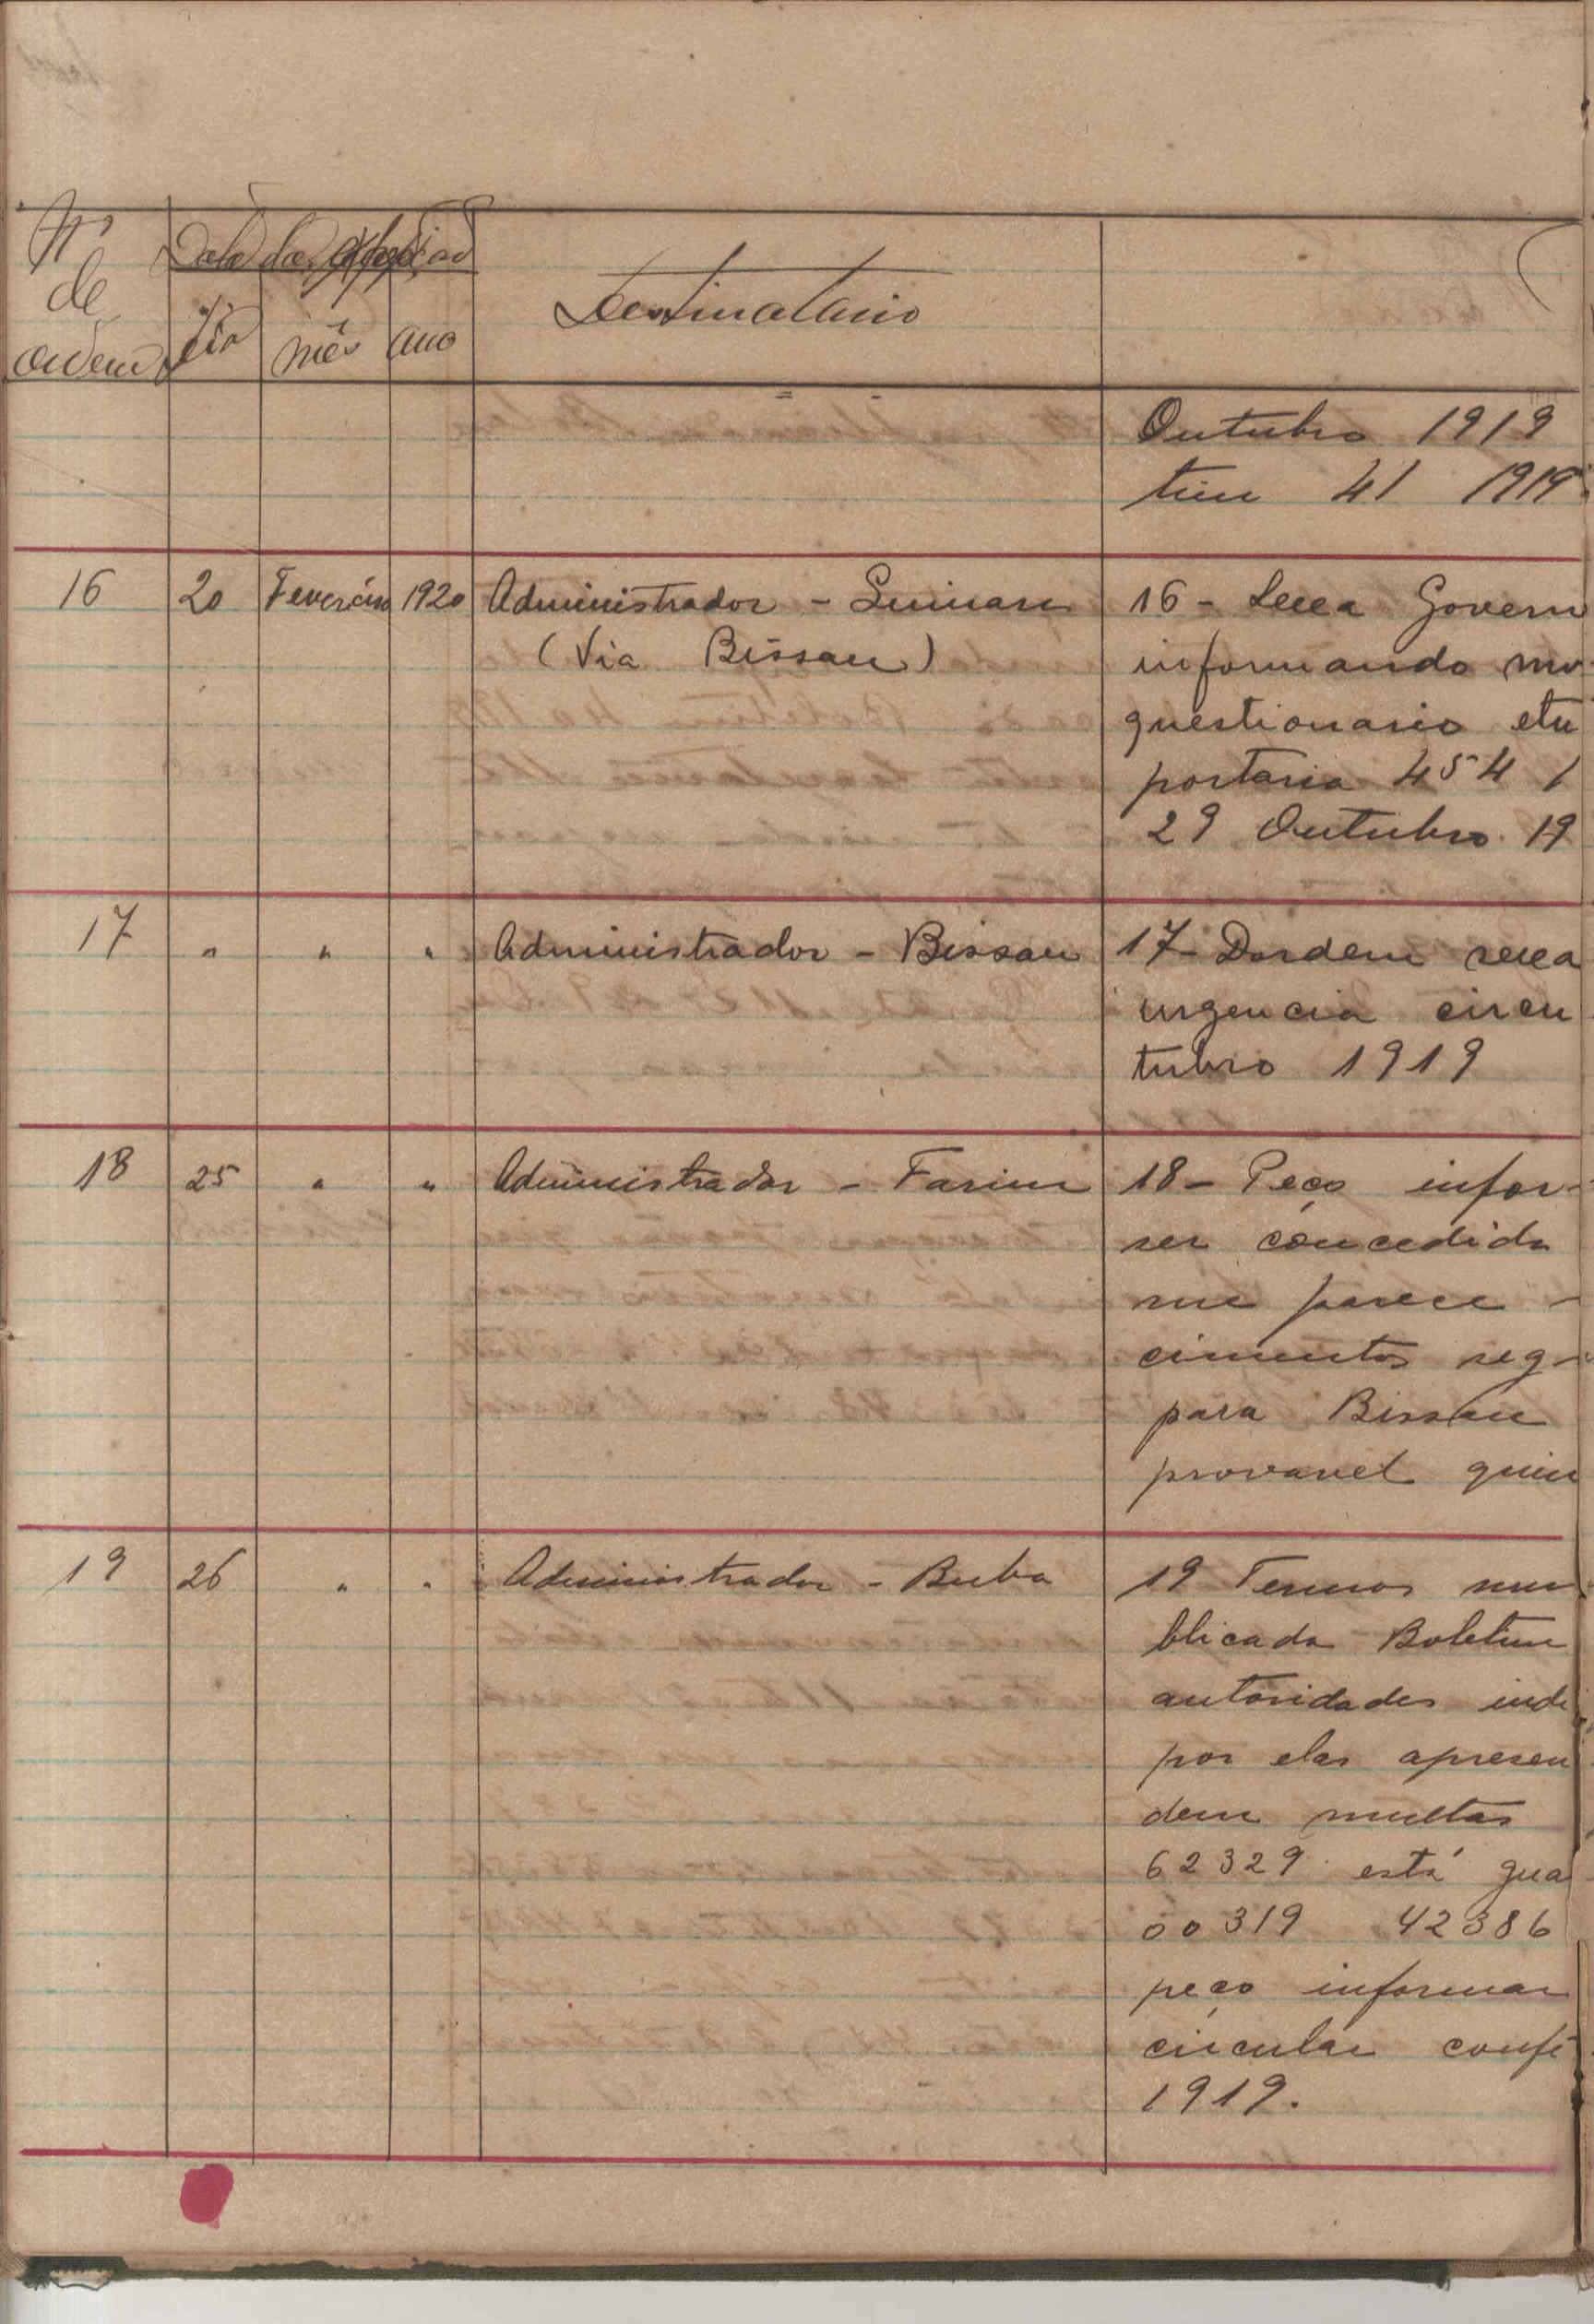 Nº de ordem
Data da expedição
dia mês ano
Destinatario
Outubro 1919
tim 41 1919
16 20 Fevereiro 1920 Administrador - 16 - Secca Govern
(Via Bissau) informando
questionario etn
portaria 454
29 Outubro 19
17 " " " Administrador - Bissau 17 - Dordem secca
urgencia circu
tubro 1919
18 25 " " Administrador - Farim 18 - Peço infor
ser concedida
me parece
cimentos seg
para Bissau
provavel quin
19 26 " " Administrador - Buba 19 Termos
blicada Boletim
autoridades indi
por elas apresen
dem multas
62329 está gua
00319 42386
peço informar
circular confi
1919.